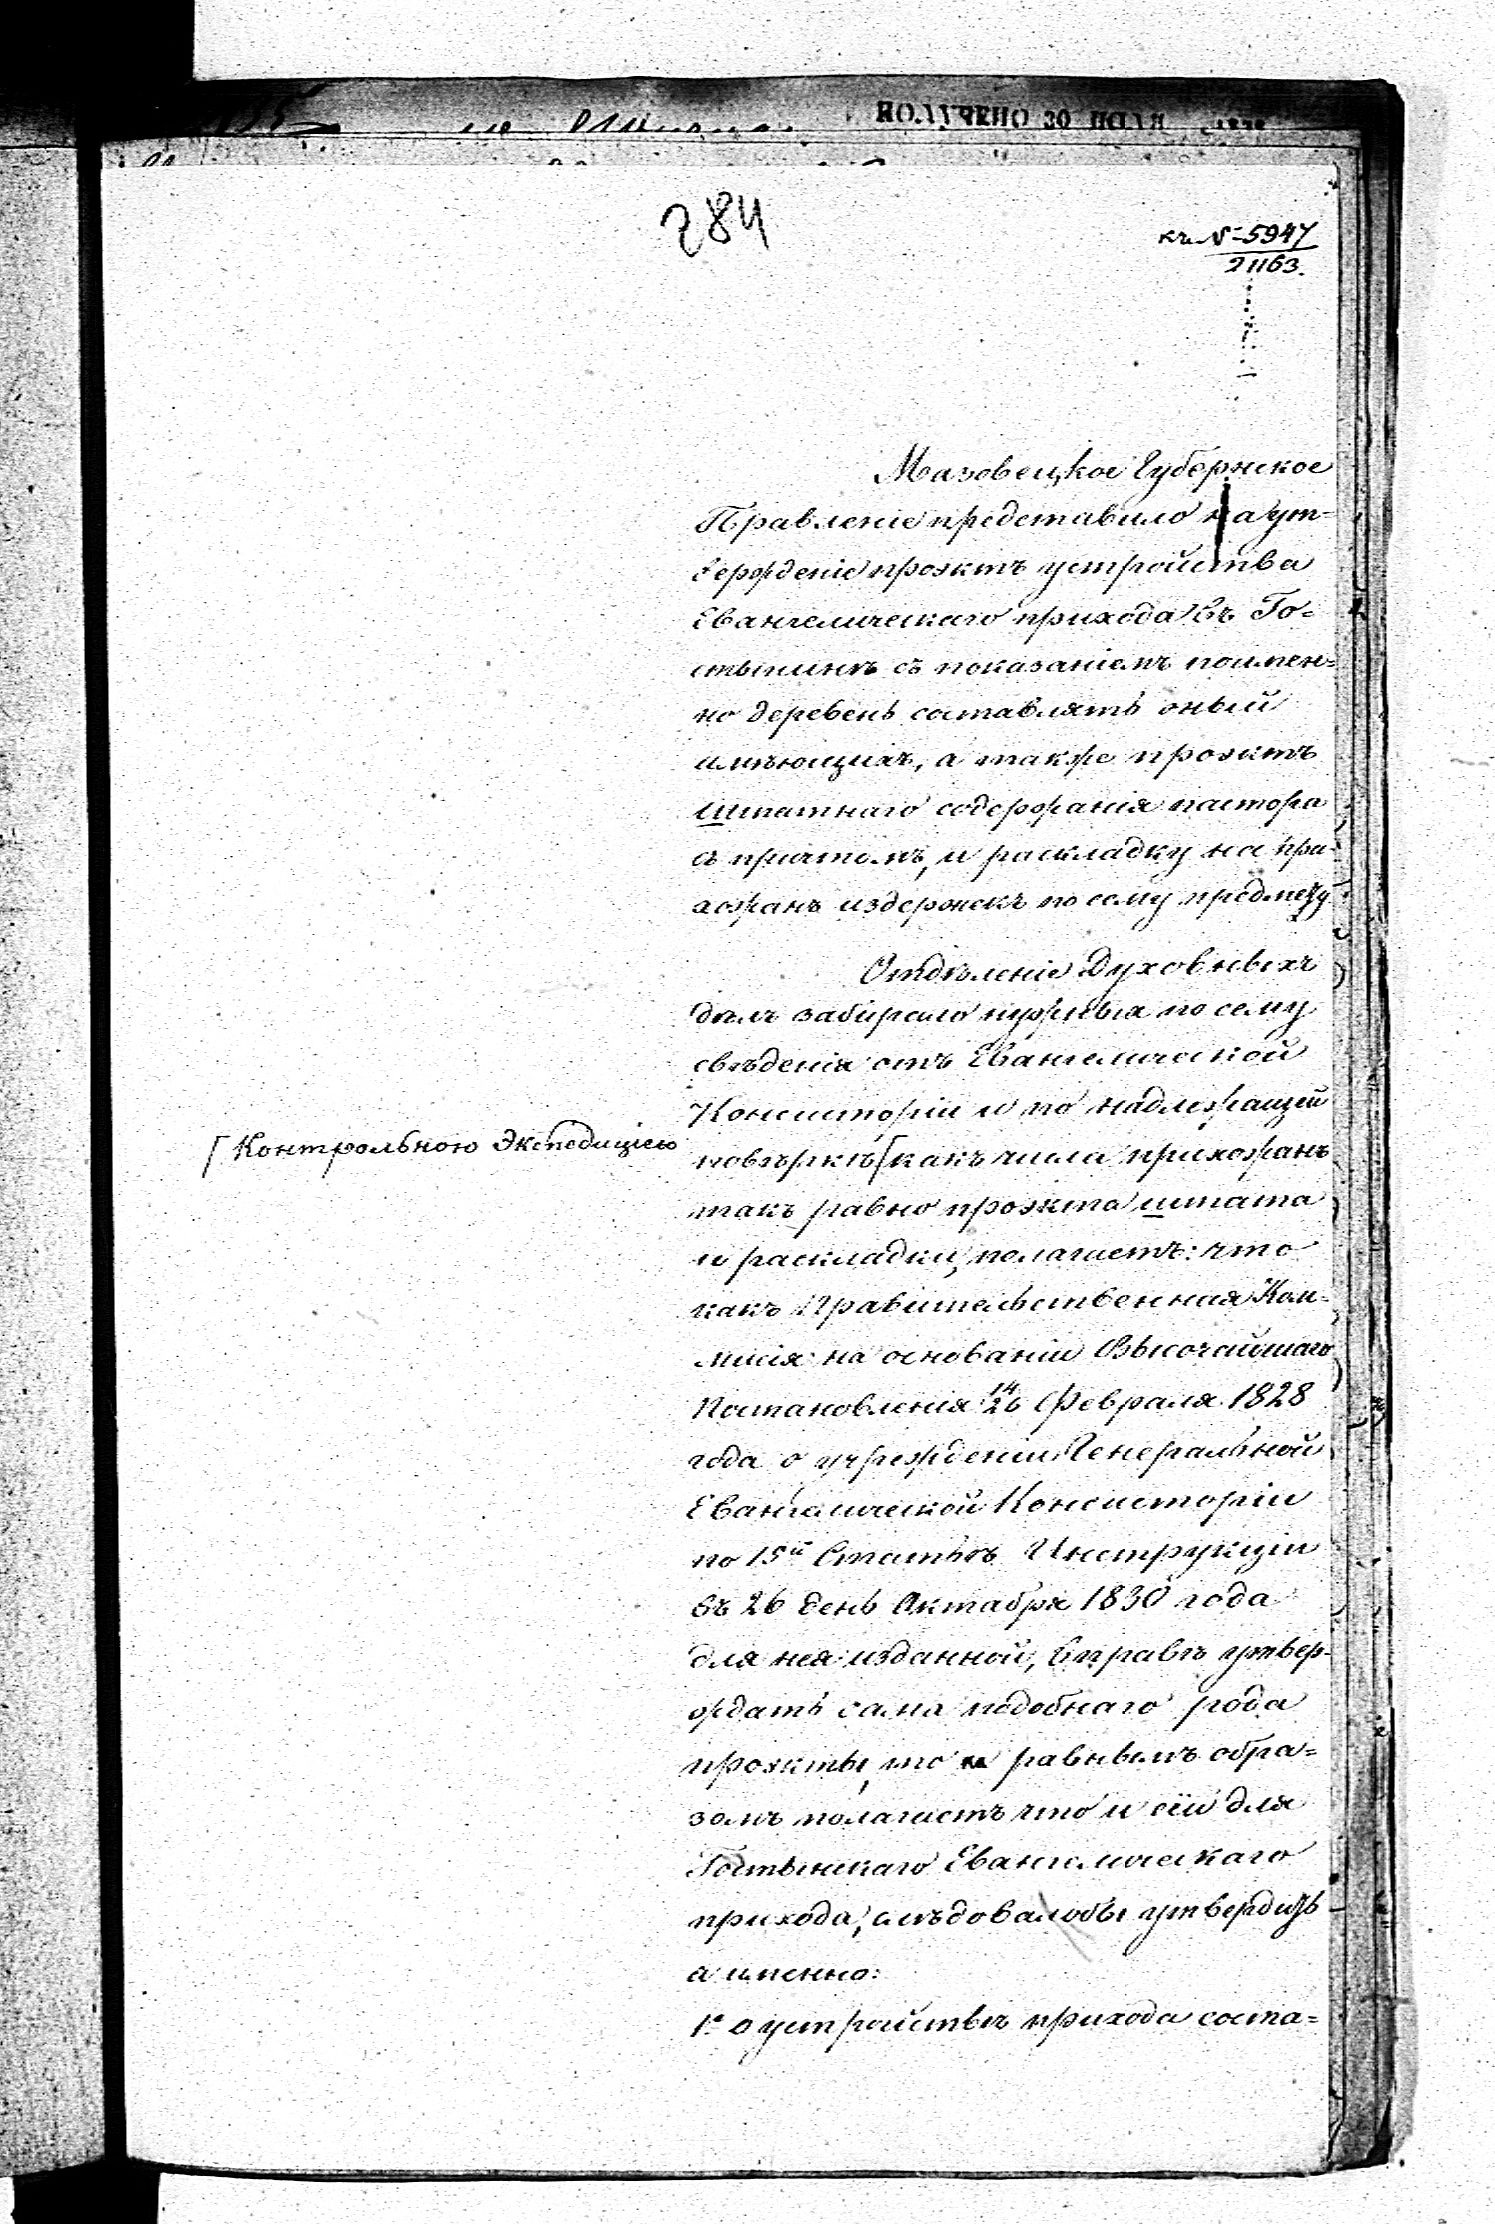 ПОЛУЧЕНО 30 ІЮЛЯ
284
къ №5947
21163.
Мазовецкое Губернское
Правленіе представило на ут-
вержденіе проэктъ устройства
Евангелическаго прихода въ Го-
стынинѣ съ показаніемъ поимен-
но деревень составлять оный
имѣющихъ, а также проэктъ
штатнаго содержанія пастора
съ причтомъ, и раскладку на при-
хожанъ издержекъ по сему предмету.
Отдѣленіе Духовныхъ
дѣлъ забирало нужныя по сему
свѣденія отъ Евангелической
Консисторіи и по надлежащей
повѣркѣ [какъ числа прихожанъ
[Контрольною Экспедиціею
такъ равно проэкта штата
и раскладки, полагаетъ: что
какъ Правительственная Ком-
мисія на основаніи Высочайшаго
Постановленія 14/26 Февраля 1828
года о учрежденіи Генеральной
Евангелической Консисторіи
по 15й Статьѣ Инструкціи
въ 26 день Октабря 1830 года
для нея изданной, вправѣ утвер-
ждать сама подобнаго рода
проэкты, то и равнымъ обра-
зомъ полагаетъ что и сій для
Гостынскаго Евангелическаго
прихода, слѣдовалобы утвердить
а именно:
1е О устройствѣ прихода соста-